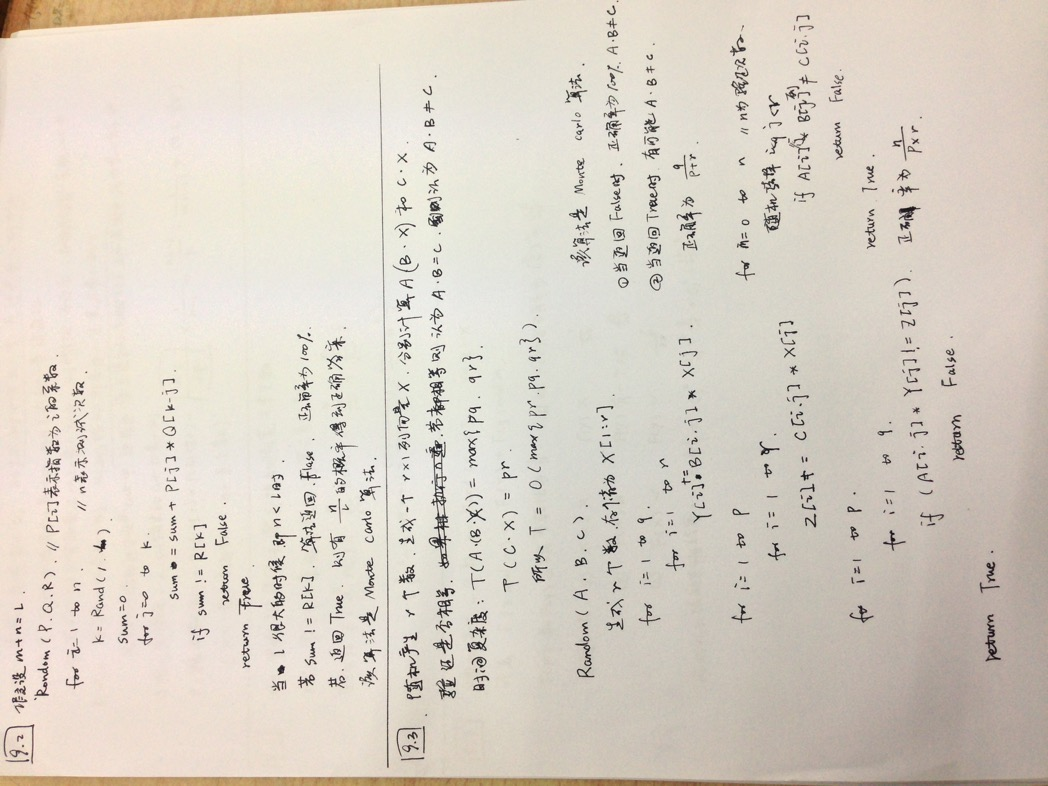 9.2 假设 m+n=L.
Random(P.Q.R). // P[i]表示指数为i的系数.
for i=1 to n. // n表示测试次数.
k=Rand(1.
sum=0
for j=0 to k.
sum = sum + P[j]*Q[k-j].
if sum != R[k]
return False
return True.
当 l 很大的时候, 即 n<l时
若 sum != R[k]. 算法返回 Flase. 正确率为100%.
若.返回True. 则有 n/l 的概率得到正确答案.
该算法是 Monte carlo 算法.
9.3. 随机产生 r 个数. 生成一个 r×1列向量 X. 分别计算 A(B·X)和 C·X.
验证是否相等. 若都相等则认为 A·B=C. 否则认为 A·B≠C.
时间复杂度: T(A·(B·X))=max{pq.qr}.
T(C·X)=pr
所以 T=O(max{pr.pq.qr}).
Random(A.B.C)
生成 r个数.存储为X[1:r]
for i=1 to q.
for i=1 to r
Y[i]+=B[i.j]*X[j].
for i=1 to P
for i=1 to r.
Z[i]+=C[i.j]*X[j]
for i=1 to P.
for i=1 to q.
if (A[i.j]*Y[j]!=Z[j]).
return False.
return True.
该算法是 Monte carlo 算法.
①当返回False时. 正确率为100%. A·B≠C.
②当返回True时 有可能 A·B≠C.
正确率为 q/p+r
for m=0 to n // n为验证次数.
随机选择 i<q j<r
if A[i]*B[j]列≠C[i.j]
return False.
return True.
正确率为 n/p×r.